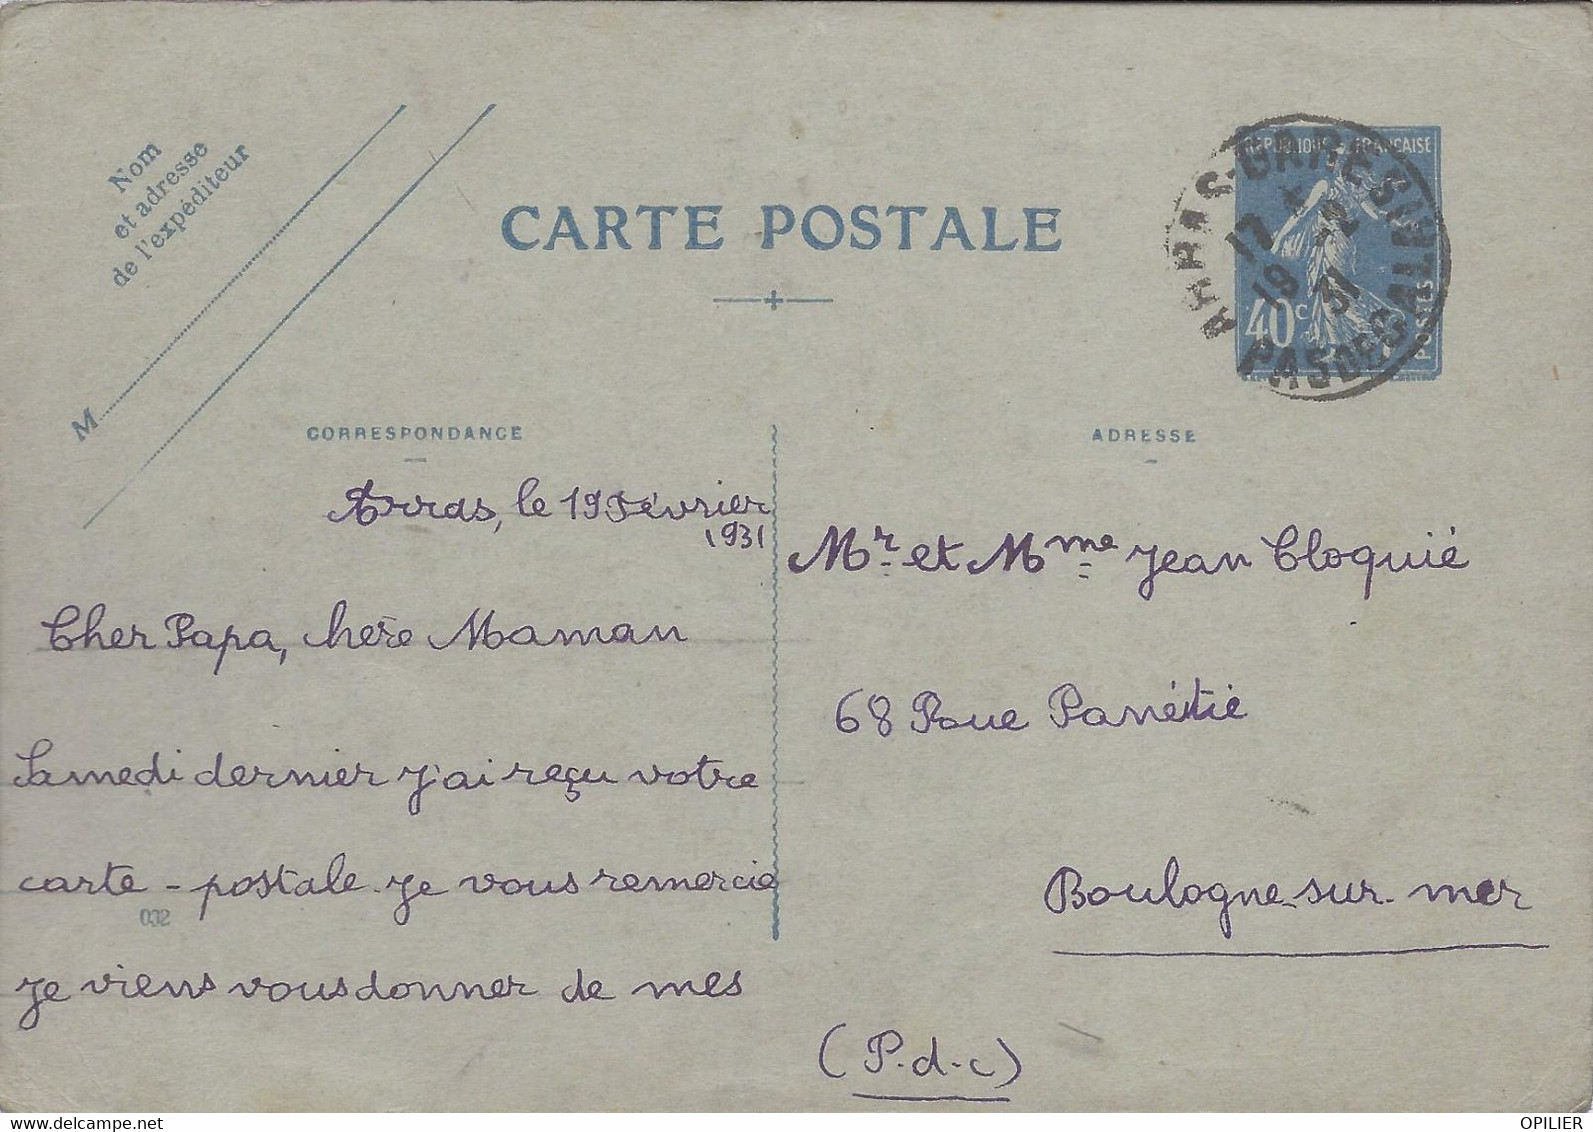 Nom
et adresse
de l'expéditeur
M
CARTE POSTALE
REPUBLIQUE FRANÇAISE
40c
POSTES
ARRAS-GARE
PAS DE CALAIS
17 * 19 -2 31
CORRESPONDANCE
Arras, le 19 Février
1931
Cher Papa, chère Maman
Samedi dernier j'ai reçu votre
carte-postale je vous remercie
032
je viens vous donner de mes
ADRESSE
Mr et Mme Jean Cloquié
68 Roue Panétié
Boulogne-sur-mer
(P-d-c)
delcampe.net
OPILIER